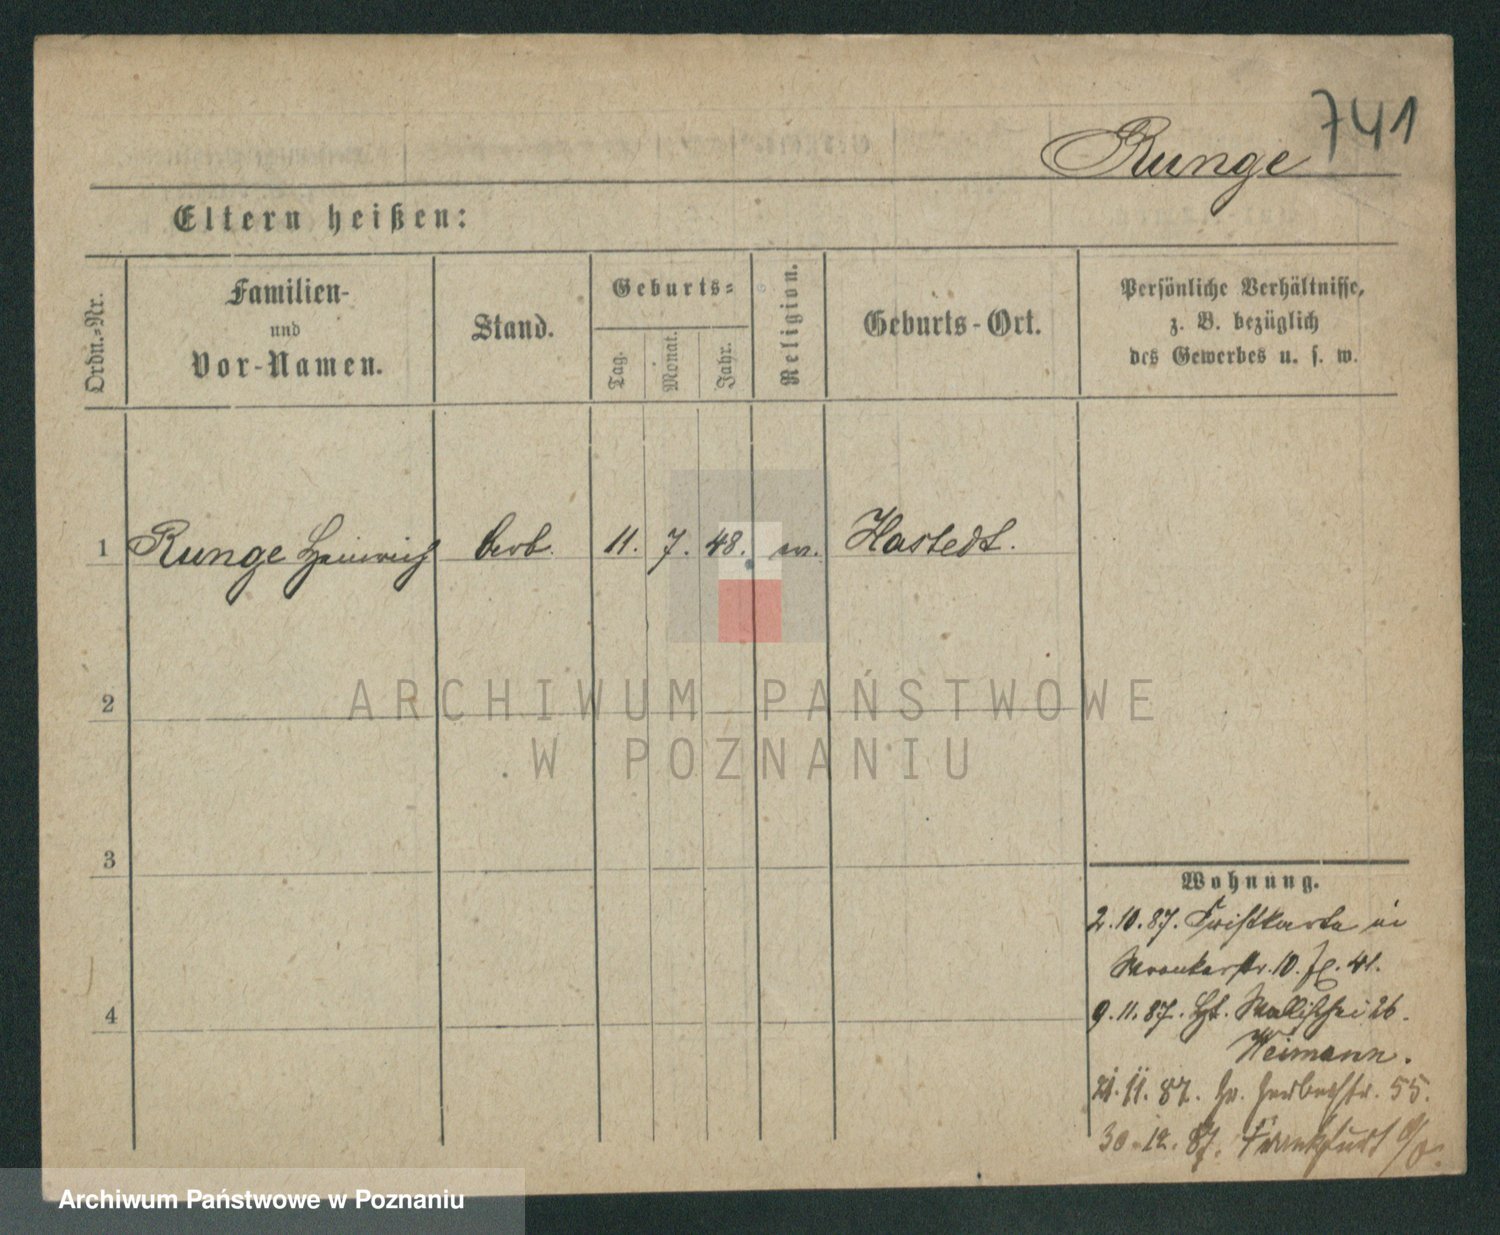 741
Runge
Eltern heißen:
Ordn.-Nr.
Familien-
und
Vor-Namen.
Stand.
Geburts-
Tag.
Monat.
Jahr.
Religion.
Geburts-Ort.
Persönliche Verhältnisse,
z. B. bezüglich
des Gewerbes u. s. w.
1 Runge Heinrich 11. 7. 48. Hastedt.
2
ARCHIWUM PAŃSTWOWE
W POZNANIU
3
4
Wohnung.
2.10.87. in
Wronkerstr. 10. 41.
9.11.87. Wallischei 26.
Weimann.
21.11.87. 55.
30.12.87. Frankfurt a/O.
Archiwum Państwowe w Poznaniu